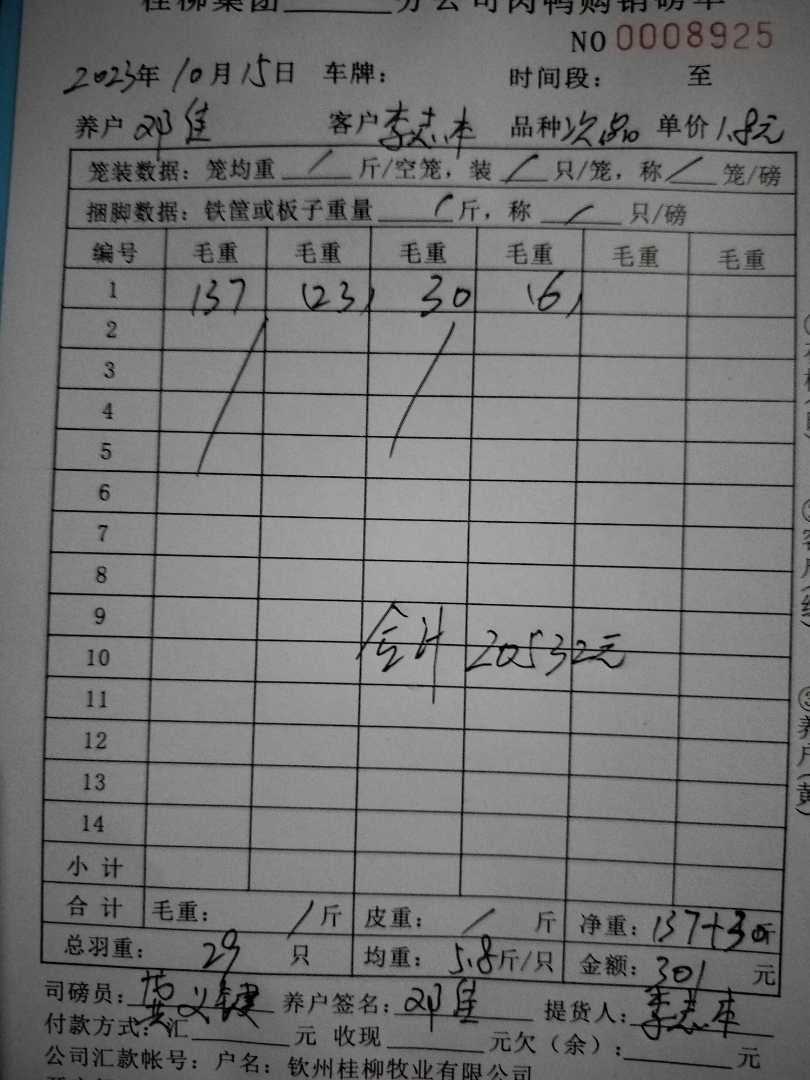 桂柳集团______分公司肉鸭购销磅单
NO 0008925
2023年 10月 15日 车牌： 时间段： 至
养户 邓佳 客户 李志本 品种 次品 单价 1.8元
笼装数据：笼均重 / 斤/空笼，装 / 只/笼，称 / 笼/磅
捆脚数据：铁筐或板子重量 / 斤，称 / 只/磅
编号 毛重 毛重 毛重 毛重 毛重 毛重
1 137 (23) 30 (6)
2
3
4
5
6
7
8
9
10
合计 205.32元
11
12
13
14
小计
合计 毛重： / 斤 皮重： / 斤 净重：137+30斤
总羽重： 29 只 均重：5.8斤/只 金额：301 元
司磅员： 养户签名：邓佳 提货人：李志本
付款方式：汇______元 收现______元欠（余）：______元
公司汇款帐号：户名：钦州桂柳牧业有限公司